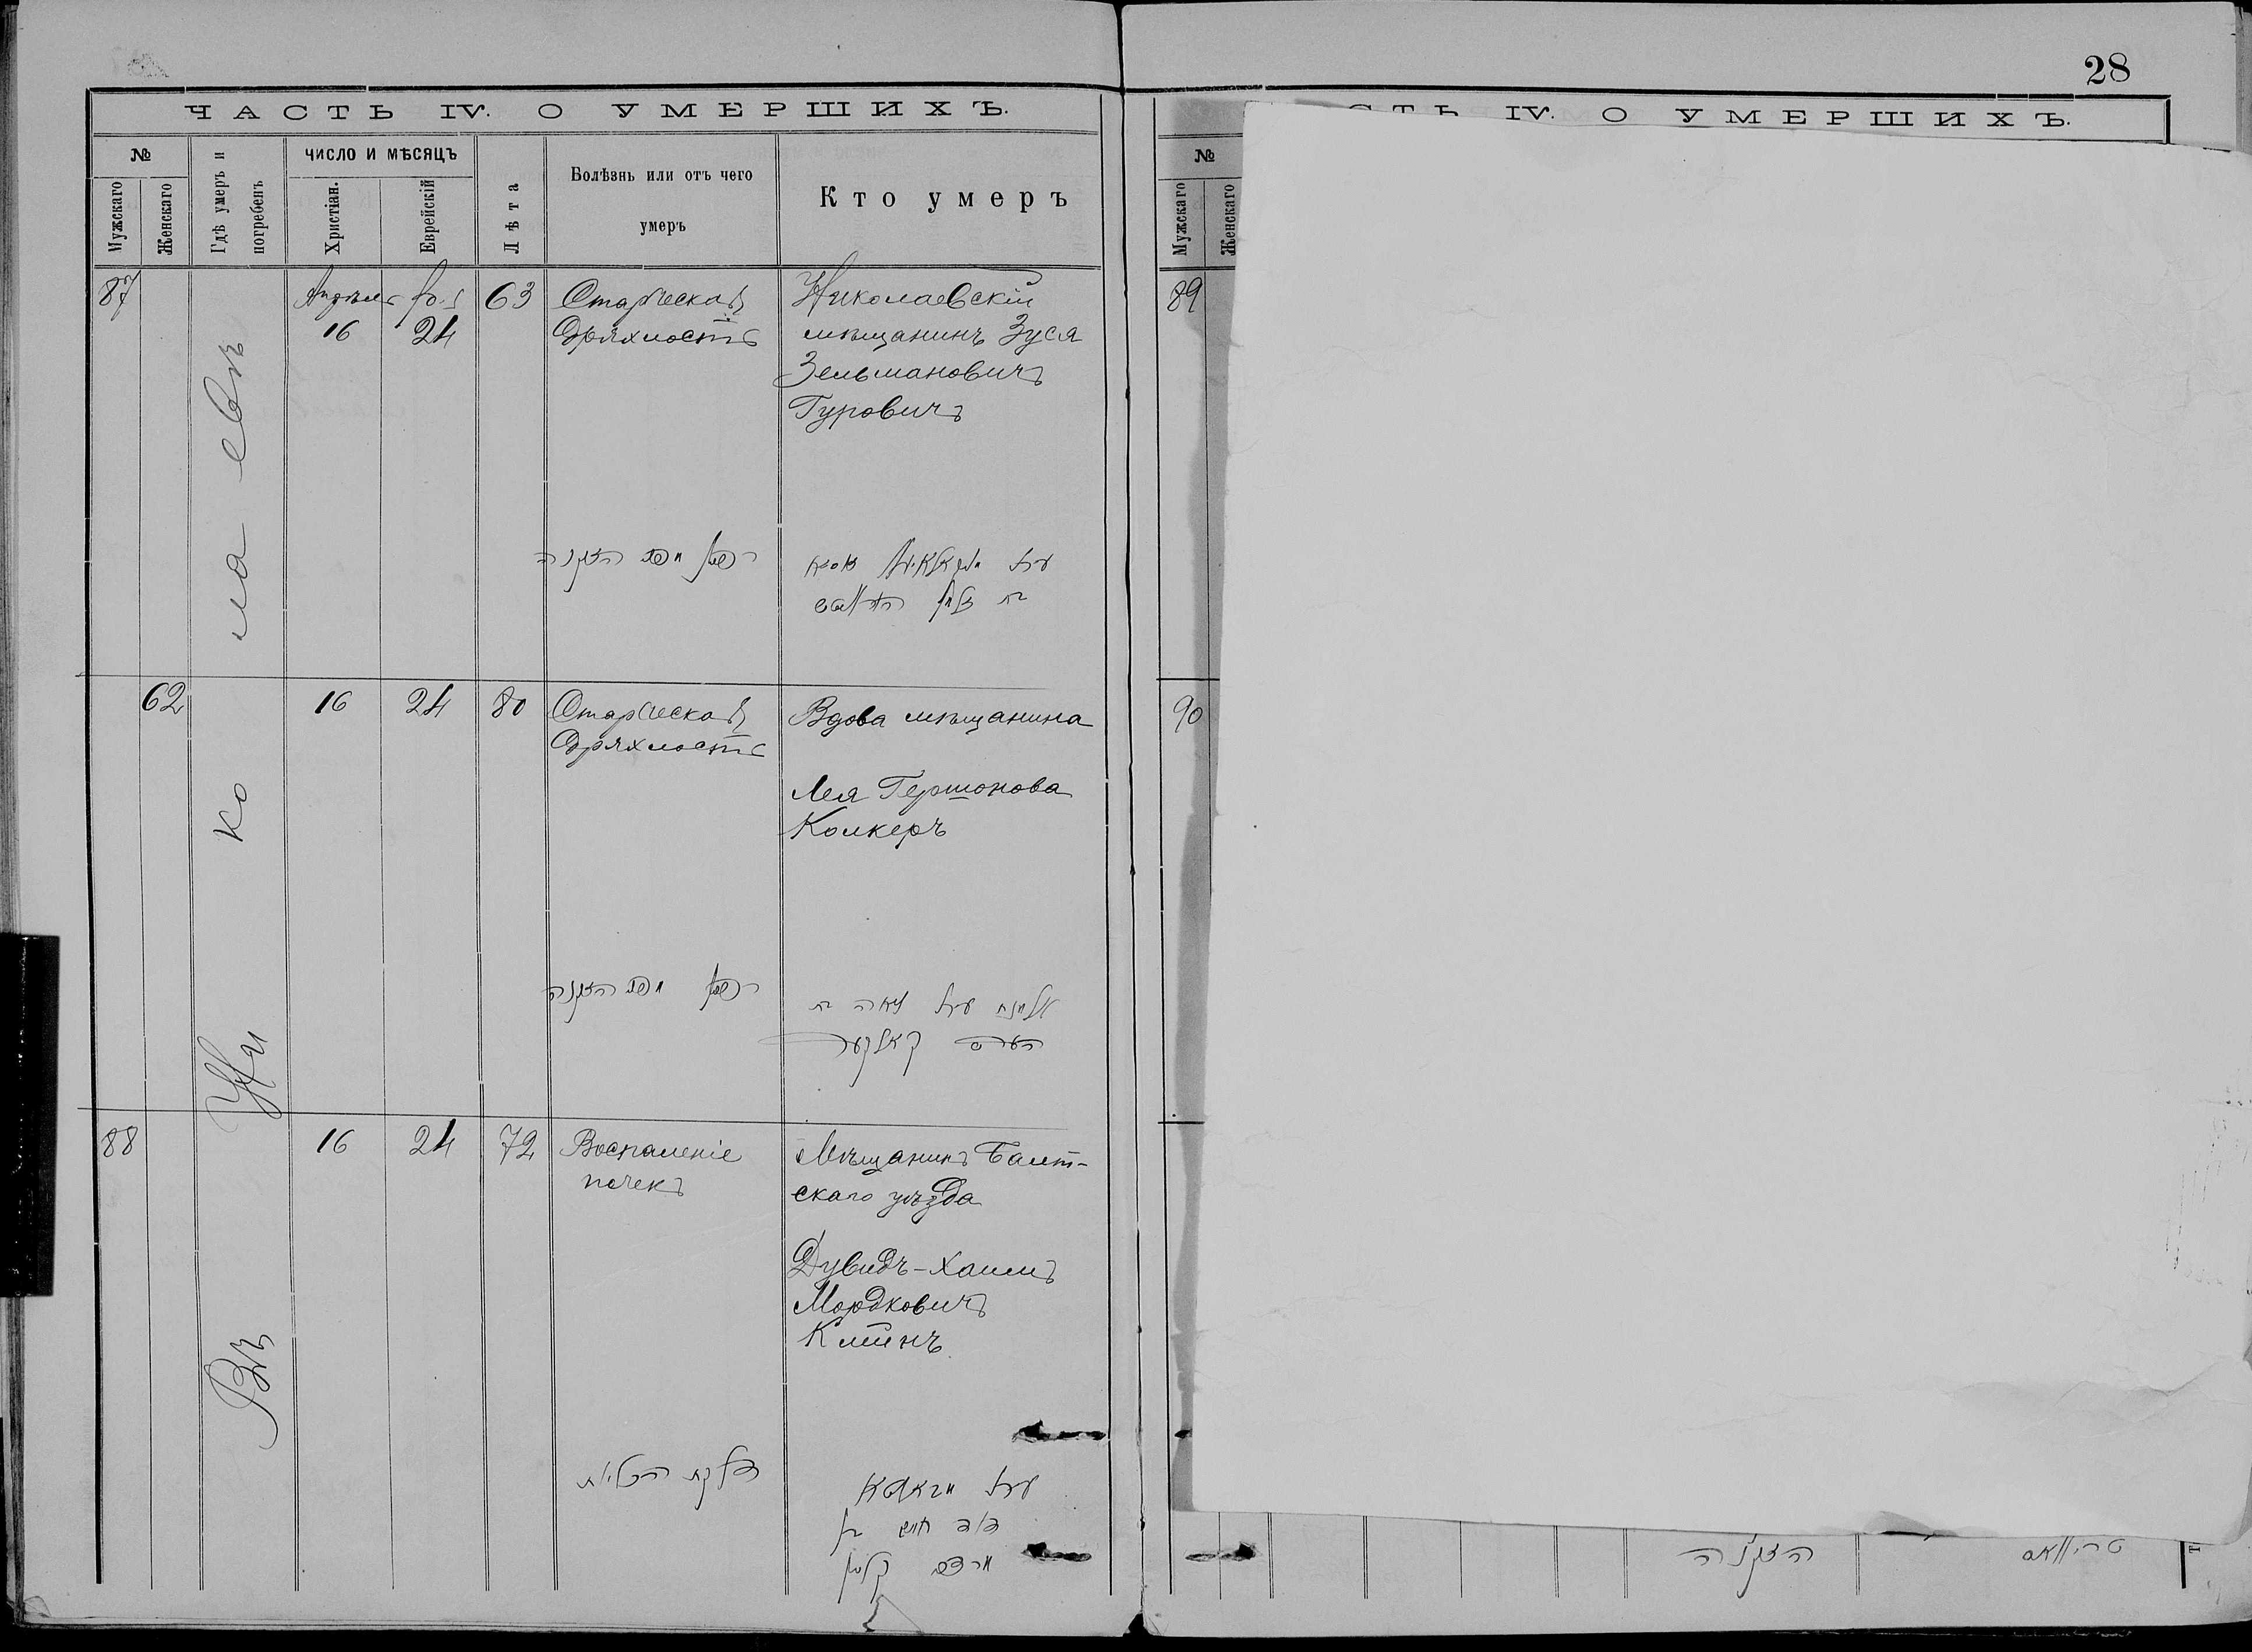 28
ЧАСТЬ IV. О УМЕРШИХЪ.
№
Мужскаго
Женскаго
Гдѣ умеръ и погребенъ
ЧИСЛО И МѢСЯЦЪ
Христіан.
Еврейскій
Лѣта
Болѣзнь или отъ чего
умеръ
Кто умеръ
Въ Николаевѣ
87
Апрѣля
16
24
63
Старческая
дряхлость
Николаевскій
мѣщанинъ Зуся
Зельмановичъ
Гуровичъ
הזקנה
62
16
24
80
Старческая
дряхлость
Вдова мѣщанина
Лея Гершонова
Колкеръ
הזקנה
88
16
24
72
Воспаленіе
почекъ
Мѣщанинъ Балт-
скаго уѣзда
Дувидъ-Хаимъ
Мордковичъ
Клейнъ
דלקת הכליות
СТЬ IV. О УМЕРШИХЪ.
№
Мужскаго
Женскаго
89
90
הזקנה